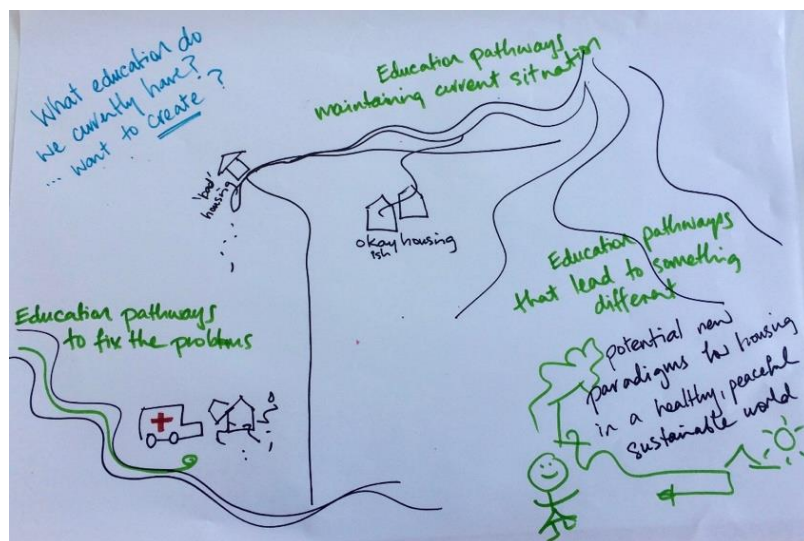 What education do
we currently have?
... want to create?
Education pathways
maintaining current situation
'bad'
housing
okay housing
ish
Education pathways
that lead to something
different
Education pathways
to fix the problems
potential new
paradigms for housing
in a healthy, peaceful
sustainable world